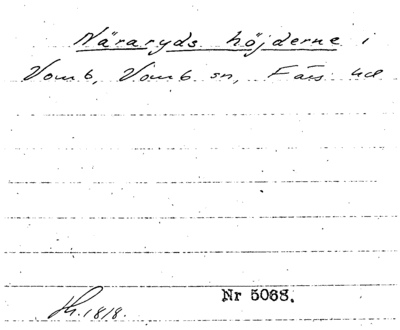 Näraryds höjderne i
Vomb, Vomb sn, Färs hd
Sk. 1818.
Nr 5068.